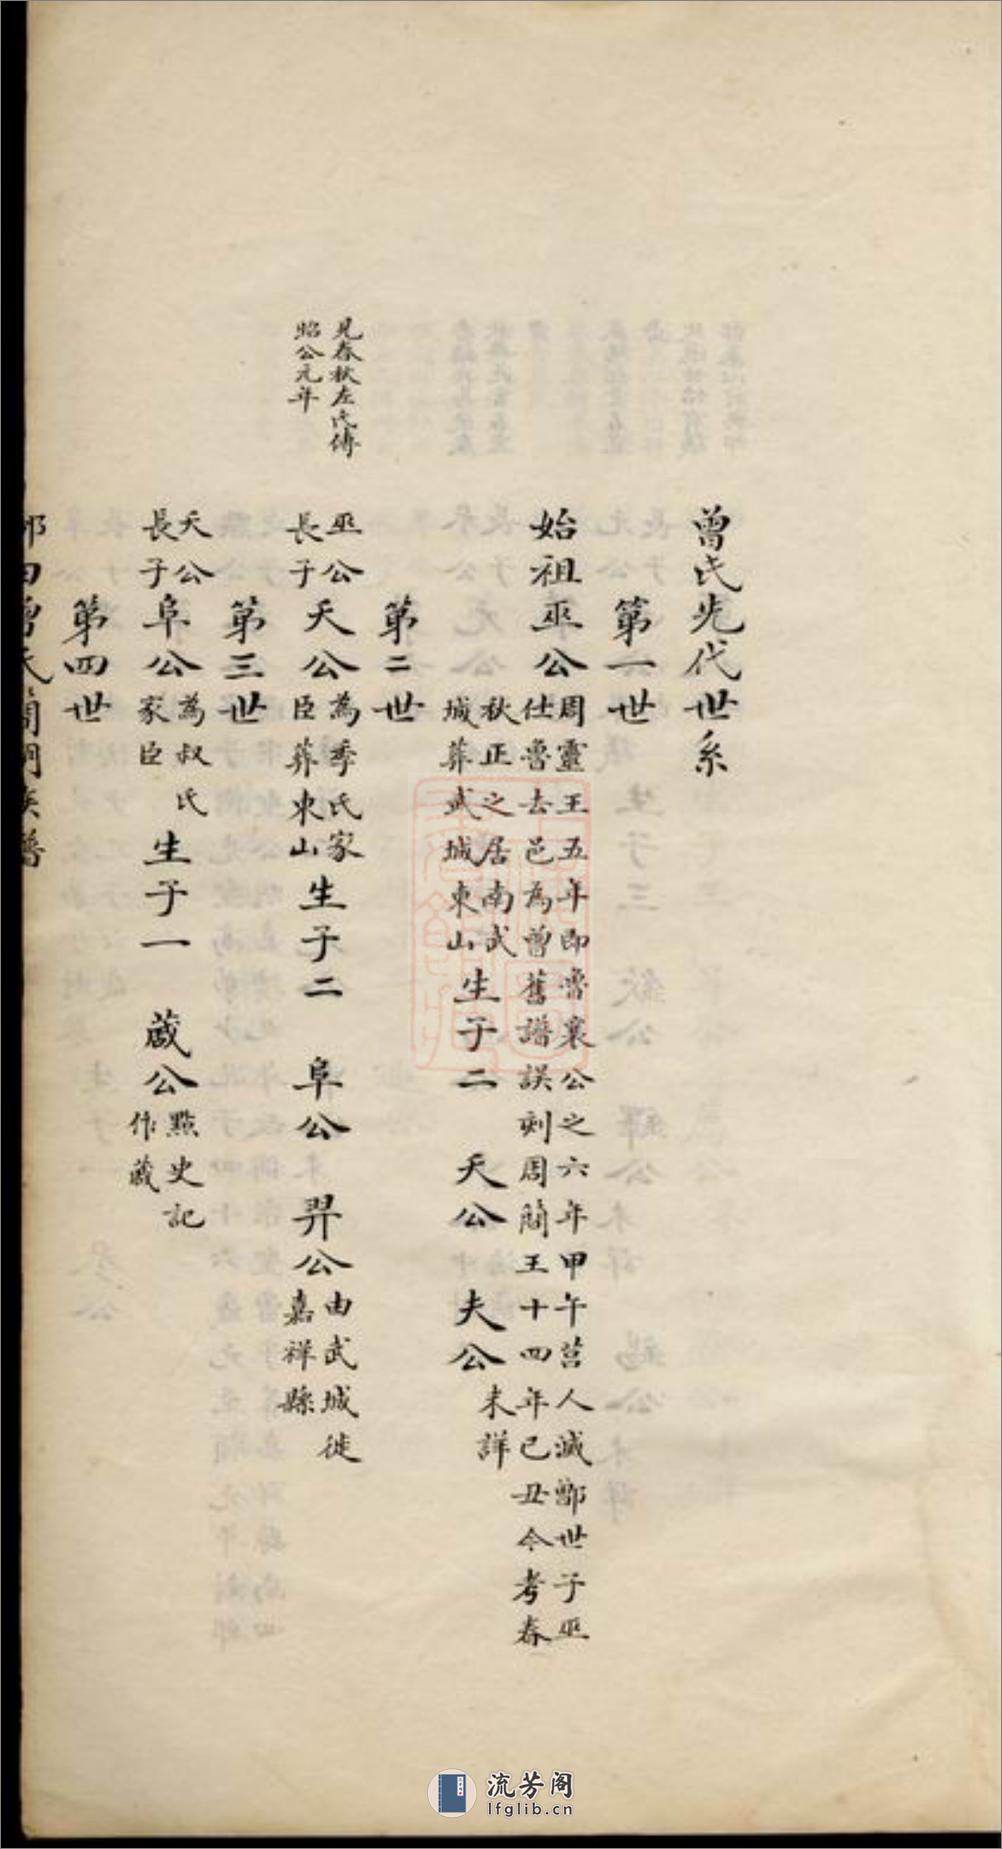 曾氏先代世系
第一世
始祖巫公周靈王五年即魯襄公之六年甲午莒人滅鄫世子巫
仕魯去邑為曾舊譜誤刻周簡王十四年己丑今考春
秋正之居南武
城葬武城東山生子二 天公 夫公未詳
第二世
見春秋左氏傳
昭公元年
巫公
長子天公為季氏家
臣葬東山生子二 阜公 羿公由武城徙
嘉祥縣
第三世
天公
長子阜公為叔氏
家臣生子一 蒧公點史記
作蒧
第四世
流芳阁
lfglib.cn